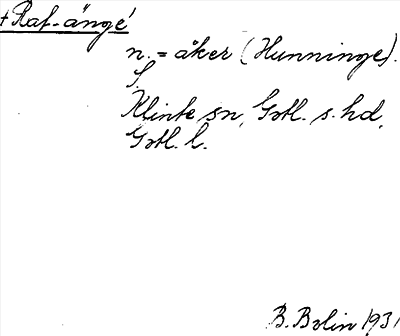 + Raf-ängé
n. = åker (Hunninge).
S.
Klinte sn, Gotl. s. hd,
Gotl. l.
B. Bolin 1931